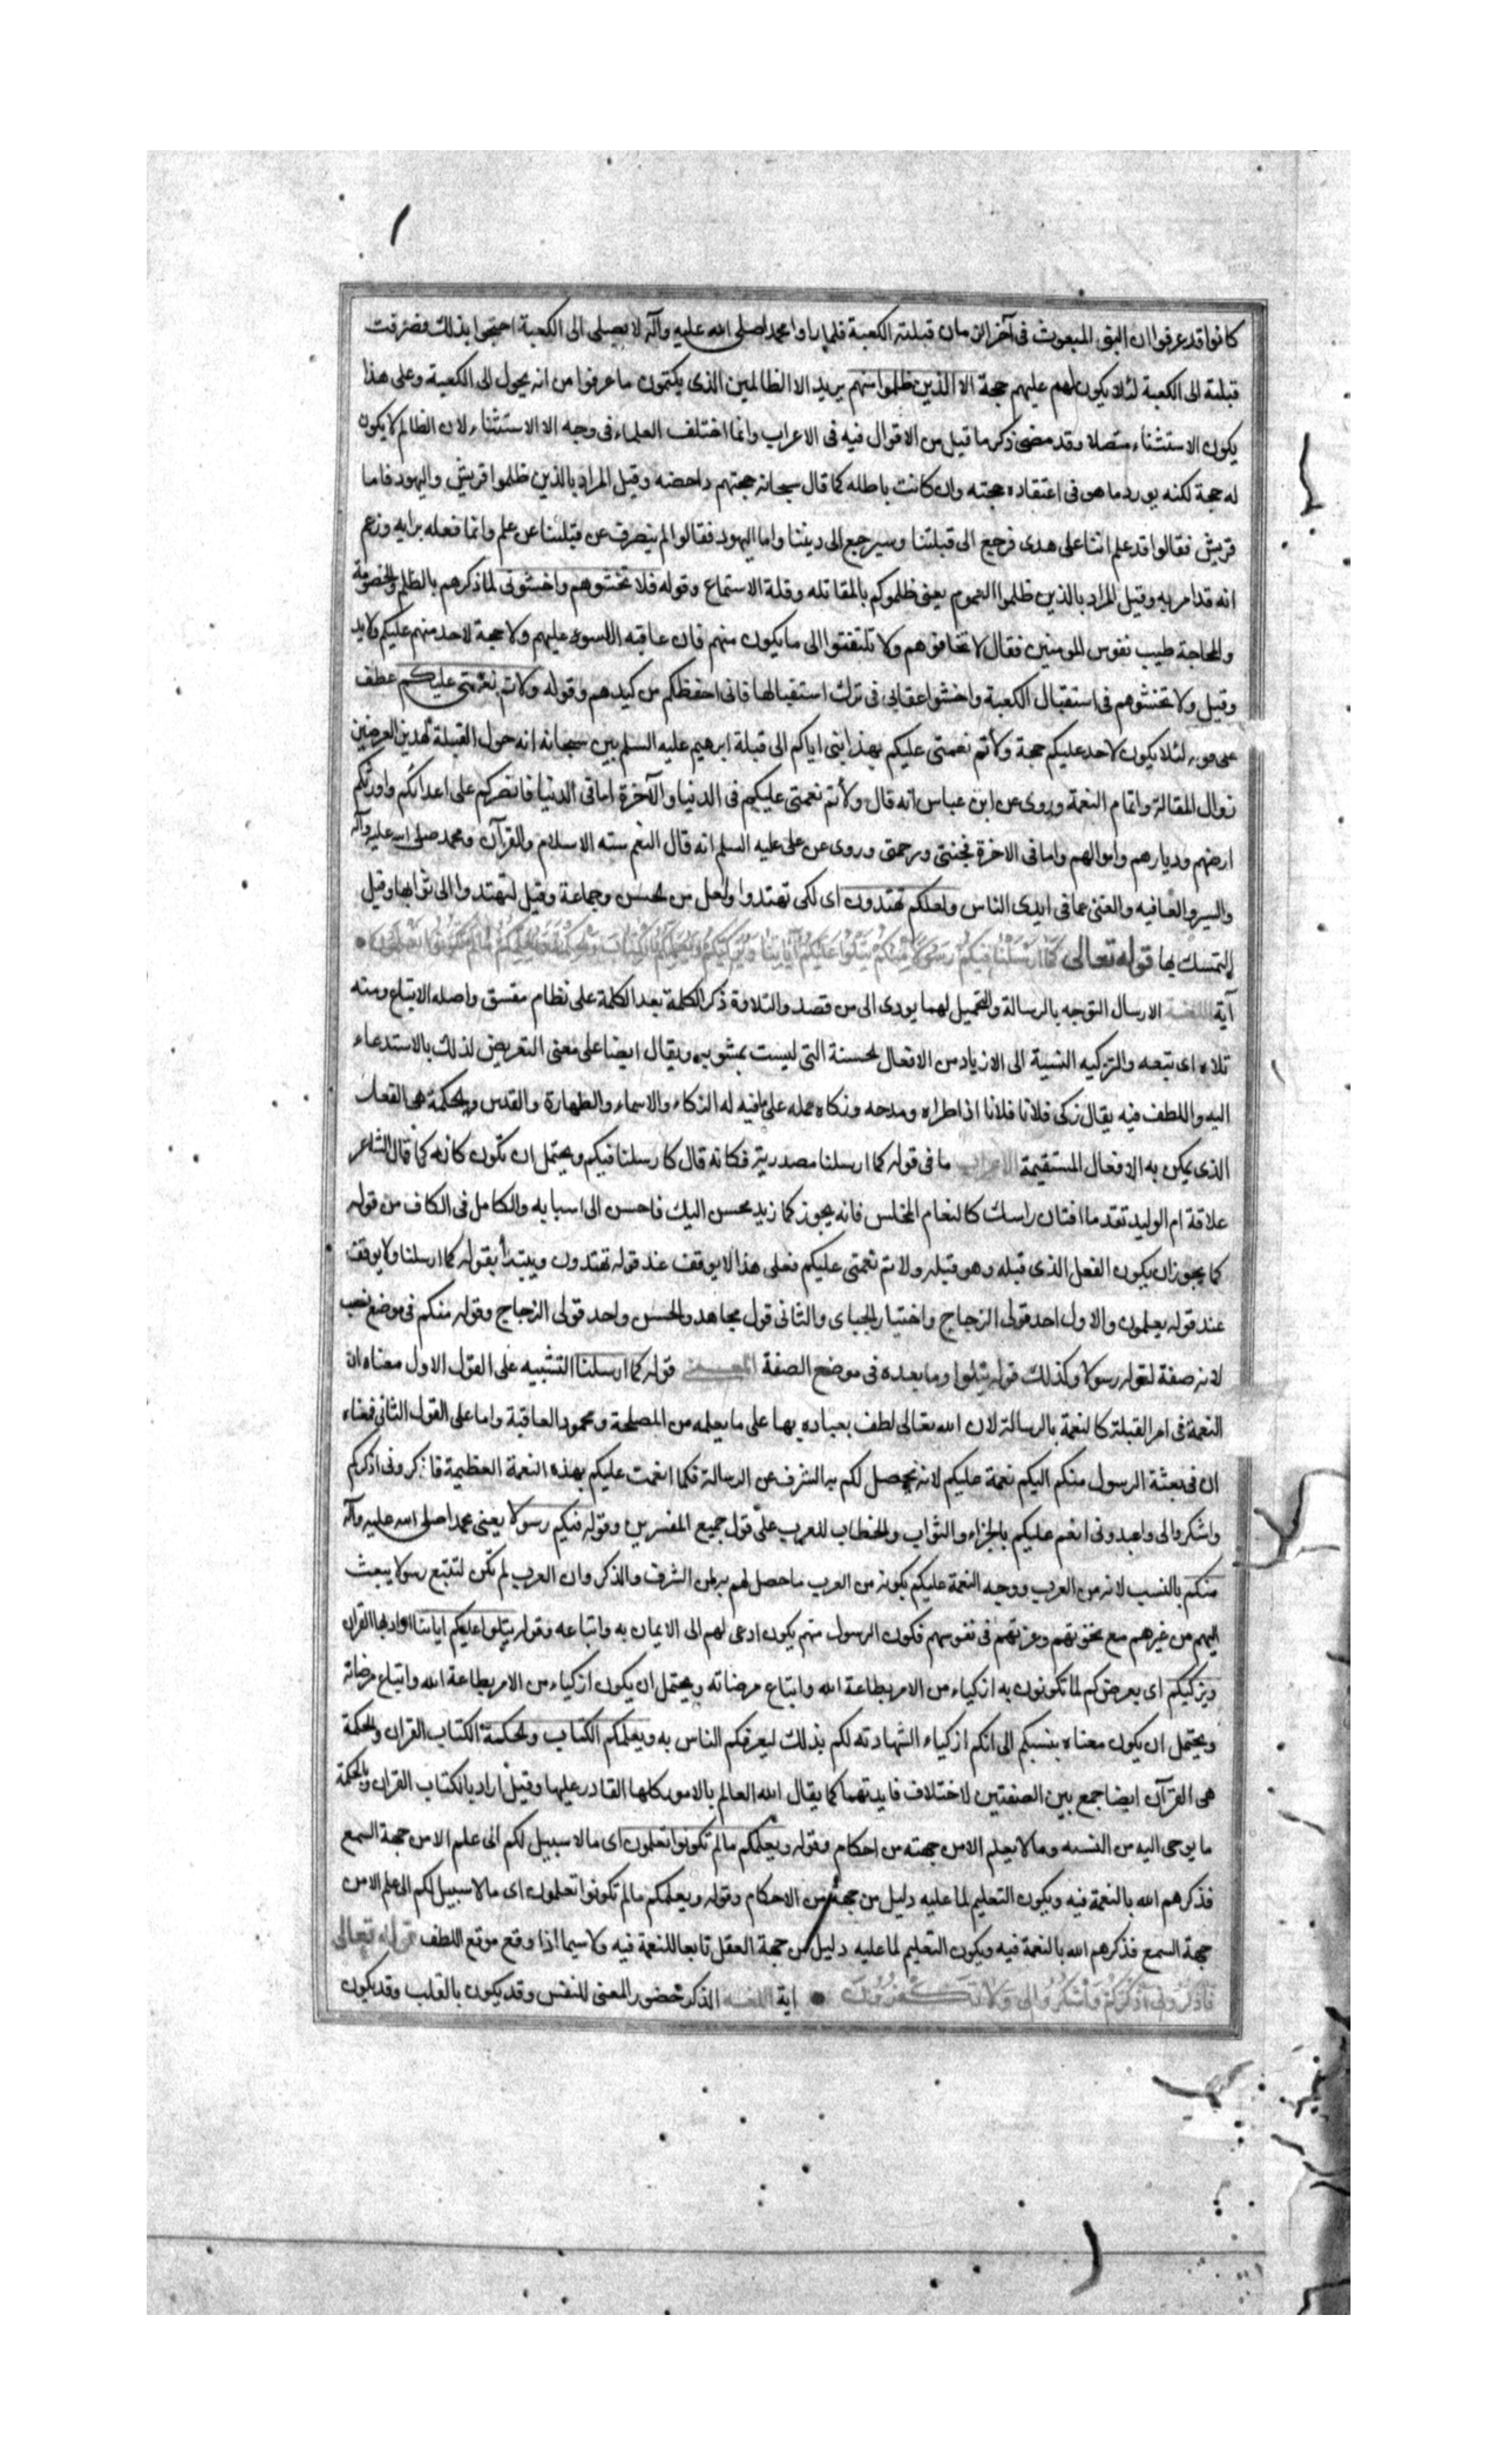 كانوا قد عرفوا ان النبى المبعوث فى آخر الزمان قبلته الكعبة فلما راوا محمدا صلى الله عليه وآله لا يصلى الى الكعبة احتجوا بذلك فصرفت
قبلته الى الكعبة لئلا يكون لهم عليهم حجة الا الذين ظلموا منهم يريد الا الظالمين الذى يكتمون ما عرفوا من انه يحول الى الكعبة وعلى هذا
يكون الاستثناء متصلا وقد مضى ذكر ما قيل من الاقوال فيه فى الاعراب وانما اختلف العلماء فى وجه الا الاستثناء لان الظالم لا يكون
له حجة لكنه يورد ما هو فى اعتقاده حجته وان كانت باطله كما قال سبحانه حجتهم داحضه وقيل المراد بالذين ظلموا قريش واليهود فاما
قريش فقالوا قد علم اننا على هدى فرجع الى قبلتنا وسيرجع الى ديننا واما اليهود فقالوا لم ينصرف عن قبلتنا عن علم وانما فعله برايه وزعم
انه قد امر به وقيل المراد بالذين ظلموا العموم يعنى ظلموكم بالمقاتله وقلة الاستماع وقوله فلا تخشوهم واخشونى لما ذكرهم بالظلم والخصومة
والمحاجة طيب نفوس المومنين فقال لا تخافوهم ولا تلتفتوا الى ما يكون منهم فان عاقبه السوء عليهم ولا حجة لاحد منهم عليكم ولا يد
وقيل ولا تخشوهم فى استقبال الكعبة واخشوا عقابى فى ترك استقبالها فانى احفظكم من كيدهم وقوله ولاتم نعمتى عليكم عطف
على قوله لئلا يكون لاحد عليكم حجة ولأتم نعمتى عليكم بهدايتى اياكم الى قبلة ابرهيم عليه السلم بين سبحانه انه حول القبلة لهذين الغرضين
زوال المقالة واتمام النعمة وروى عن ابن عباس انه قال ولأتم نعمتى عليكم فى الدنيا والآخرة اما فى الدنيا فانصركم على اعدائكم واورثكم
ارضهم وديارهم واموالهم واما فى الاخرة فجنتى ورحمتى وروى عن على عليه السلم انه قال النعم سته الاسلام والقرآن ومحمد صلى الله عليه وآله
والسر والعافيه والغنى عما فى ايدى الناس ولعلكم تهتدون اى لكى تهتدوا ولعل من الحسن وجماعة وقيل لتهتدوا الى ثوابها وقيل
للتمسك بها قوله تعالى كما أرسلنا فيكم رسولا منكم يتلوا عليكم آياتنا ويزكيكم ويعلمكم الكتاب والحكمة ويعلمكم ما لم تكونوا تعلمون
آية اللغة الارسال التوجه بالرسالة والتحميل لها ما يودى الى من قصد والتلاوة ذكر الكلمة بعد الكلمة على نظام متسق واصله الاتباع ومنه
تلاه اى تبعه والتزكيه النسبة الى الازدياد من الافعال الحسنة التى ليست بمشوبه ويقال ايضا على معنى التعريض لذلك بالاستدعاء
اليه واللطف فيه يقال زكى فلانا فلانا اذا اطراه ومدحه وزكاه حمله على ما فيه له الزكاء والاسماء والطهارة والقدس والحكمة هى الفعل
الذى يمكن به الافعال المستقيمة الاعراب ما فى قوله كما ارسلنا مصدرية فكانه قال كارسلنا فيكم ويحتمل ان تكون كافه كما قال الشاعر
علاقة ام الوليد تقدما افنان راسك كالنغام المخلس فانه يجوز كما زيد محسن اليك فاحسن الى اسبابه والكامل فى الكاف من قوله
كما يجوز ان يكون الفعل الذى قبله وهو قبله ولاتم نعمتى عليكم فعلى هذا لا يوقف عند قوله تهتدون ويبتدأ بقوله كما ارسلنا ولا يوقف
عند قوله يعلمون والاول احد قولى الزجاج واختيار الجباى والثانى قول مجاهد والحسن واحد قولى الزجاج وقوله منكم فى موضع نصب
لانه صفة لقوله رسولا وكذلك قوله يتلوا وما بعده فى موضع الصفة المعنى قوله كما ارسلنا التشبيه على القول الاول معناه ان
النعمة فى امر القبلة كالنعمة بالرسالة لان الله تعالى لطف بعباده بها على ما يعلمه من المصلحة ومحمود العاقبة واما على القول الثانى فمعناه
ان فى بعثة الرسول منكم اليكم نعمة عليكم لانه يحصل لكم به الشرف عن الرسالة فكما انعمت عليكم بهذه النعمة العظيمة فاذكرونى اذكركم
واشكروا لى واعبدونى انعم عليكم بالجزاء والثواب والخطاب للعرب على قول جميع المفسرين وقوله فيكم رسولا يعنى محمدا صلى الله عليه وآله
منكم بالنسب لانه من العرب ووجه النعمة عليكم بكونه من العرب ما حصل لهم به من الشرف والذكر وان العرب لم تكن لتتبع رسولا يبعث
اليهم من غيرهم مع نخوتهم وعزتهم فى نفوسهم فكون الرسول منهم يكون ادعى لهم الى الايمان به واتباعه وقوله يتلوا عليكم اياتنا اراد بها القران
ويزكيكم اى يعرضكم لما تكونون به ازكياء من الامر بطاعة الله واتباع مرضاته ويحتمل ان يكون ازكياء من الامر بطاعة الله واتباع مرضاته
ويحتمل ان يكون معناه ينسبكم الى انكم ازكياء الشهادته لكم بذلك ليعرفكم الناس به ويعلمكم الكتاب والحكمة الكتاب القران والحكمة
هى القرآن ايضا جمع بين الصفتين لاختلاف فايدتهما كما يقال الله العالم بالامور كلها القادر عليها وقيل اراد بالكتاب القران وبالحكمة
ما يوحى اليه من السنه وما لا يعلم الا من جهته من احكام وقوله ويعلمكم ما لم تكونوا تعلمون اى ما لا سبيل لكم الى علم الا من جهة السمع
فذكرهم الله بالنعمة فيه ويكون التعليم لما عليه دليل من جهة من الاحكام وقوله ويعلمكم ما لم تكونوا تعلمون اى ما لا سبيل لكم الى علم الا من
جهة السمع فذكرهم الله بالنعمة فيه ويكون التعليم لما عليه دليل من جهة العقل تابعا للنعمة فيه ولا سيما اذا وقع موقع اللطف قوله تعالى
فاذكرونى أذكركم واشكروا لى ولا تكفرون اية اللغة الذكر حضور المعنى للنفس وقد يكون بالقلب وقد يكون